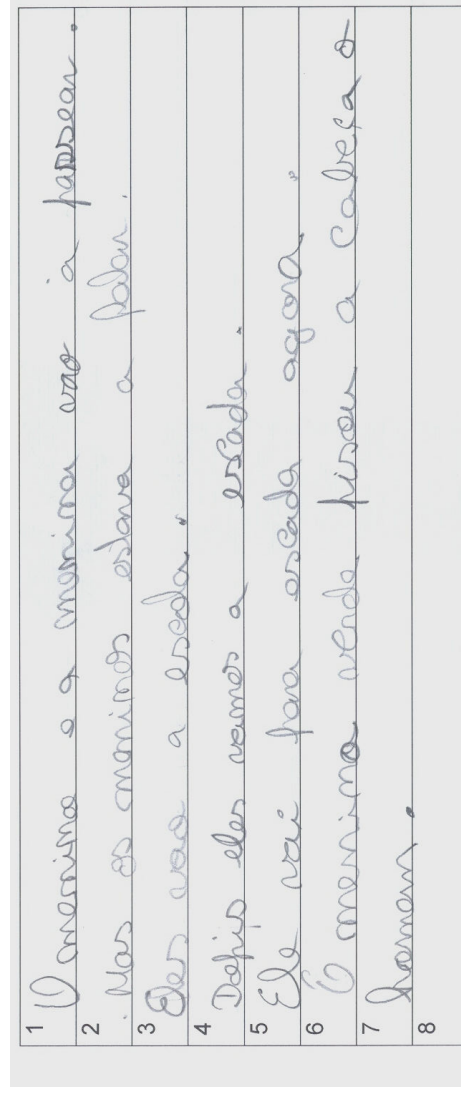 1 O menino e a menina vao á passear.
2 Mas os meninos estava a falar.
3 Eles vao a escada.
4 Depis eles vamos a escada.
5 Ele vai para escada agora.
6 O menino verde pisou a cabeça o
7 homem.
8